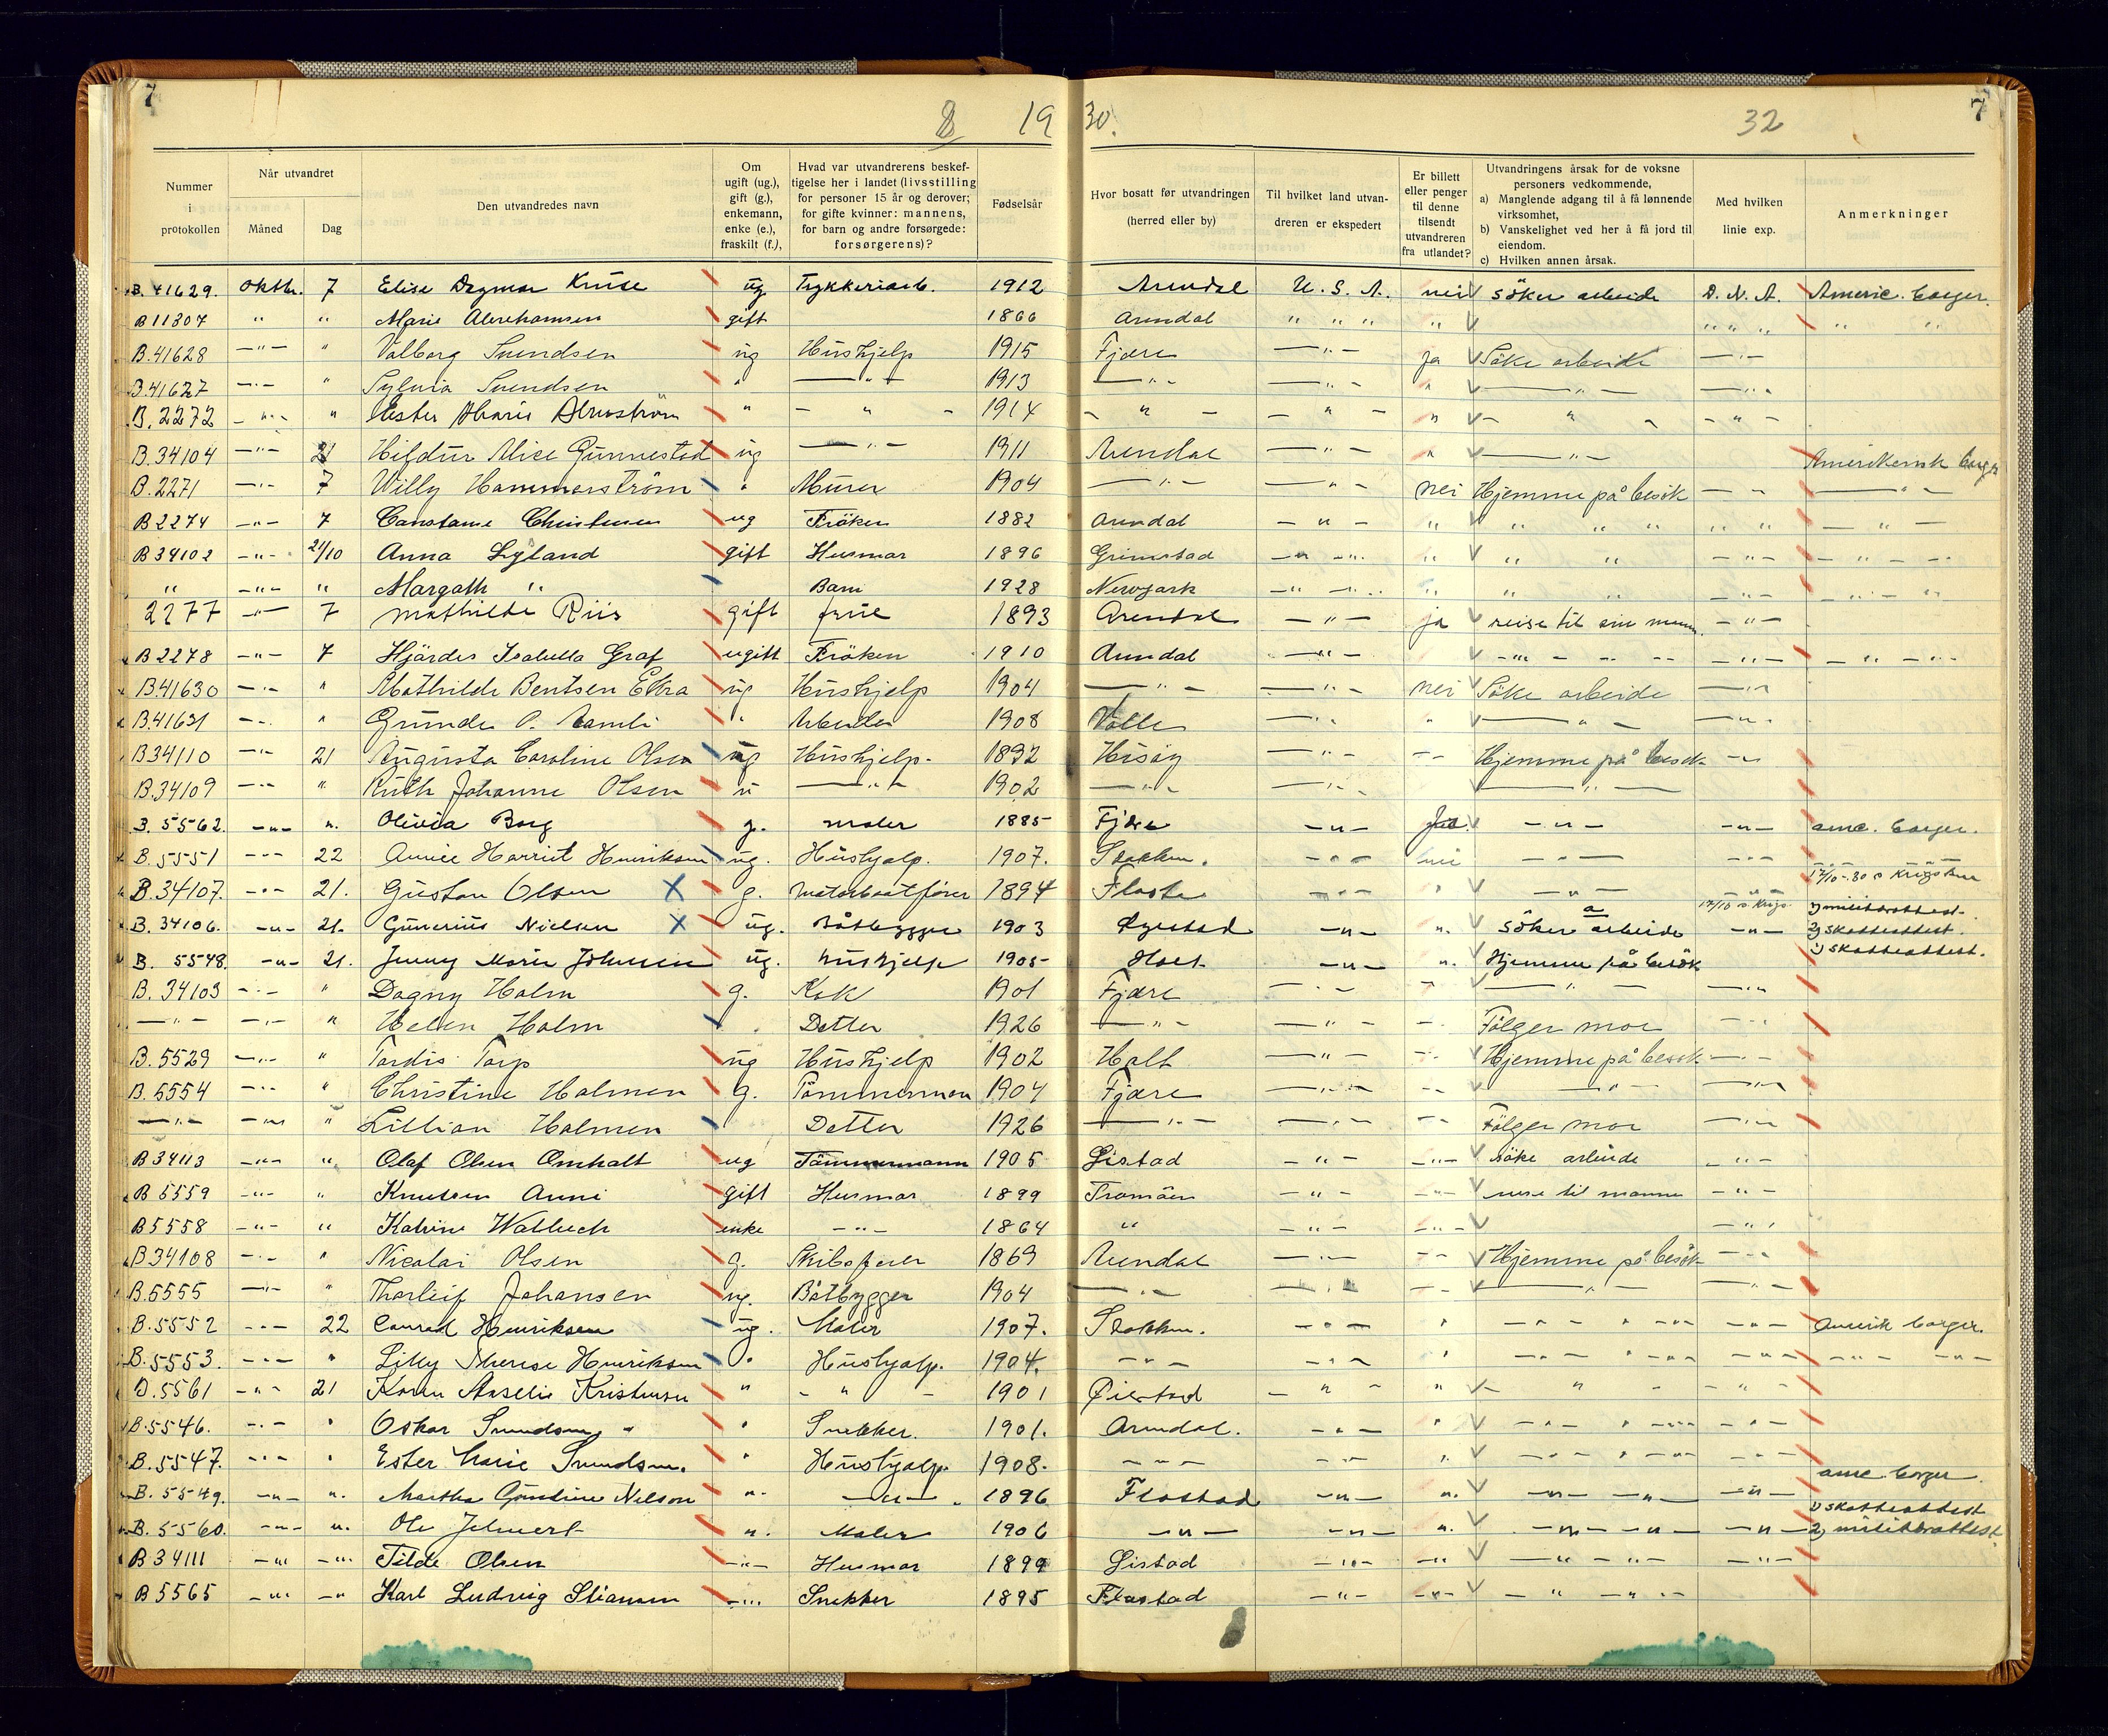 7 8 19 30. 32 7
Nummer i protokollen | Når utvandret | Måned | Dag | Den utvandredes navn | Om ugift (ug.), gift (g.), enkemann, enke (e.), fraskilt (f.), | Hvad var utvandrerens beskeftigelse her i landet (livsstilling for personer 15 år og derover; for gifte kvinner: mannens, for barn og andre forsørgede: forsørgerens)? | Fødselsår | Hvor bosatt før utvandringen (herred eller by) | Til hvilket land utvandreren er ekspedert | Er billett eller penger til denne tilsendt utvandreren fra utlandet? | Utvandringens årsak for de voksne personers vedkommende, a) Manglende adgang til å få lønnende virksomhet, b) Vanskelighet ved her å få jord til eiendom. c) Hvilken annen årsak. | Med hvilken linie exp. | Anmerkninger
B. 41629. Oktbr. 7 Elise Dagmar Kruse ug Trykkeriarb. 1912 Arendal U.S.A. nei söker arbeide D.N.A. Americ. borger.
B 11307 " " Marie Abrahamsen gift 1866 Arendal " " " " " " " " "
B. 41628 —"— " Valborg Svendsen ug Hushjelp 1915 Fjære —"— ja Söke arbeide —"—
B. 41627 —"— " Sylvia Svendsen " —"— 1913 —"— —"— " —"— —"—
B. 2272 —"— " Ester Marie " — " — 1914 — " — — " — " — " — — " —
B. 34104 —"— 21 Hildur Alice Gunnestad ug —"— 1911 Arendal —"— " —"— Amerikansk borger
B. 2271 —"— 7 Willy Hammerström " Murer 1904 —"— —"— nei Hjemme på besök — — —"—
B 2274 —"— 7 Constanse Christensen ug Fröken 1882 Arendal — " — " " " " " " —"—
B 34102 —"— 21/10 Anna Lyland gift Husmor 1896 Grimstad —"— " " " —"— —"—
" —"— " Margoth " Barn 1928 Newyark —"— " " " —"— —"—
2277 —"— 7 Mathilde Riis gift frue 1893 Arendal —"— ja reise til sin mann. —"—
B 2278 —"— 7 Hjördis Isabella Graf ugift Fröken 1910 Arendal —"— —"— —"— —"—
B. 41630 —"— " Mathilde Bentsen Ekra ug Hushjelp 1904 —"— —"— nei Söke arbeide —"—
B. 41631 —"— " Gunder O. " Arbeider 1908 Valle —"— " —"— —"—
B 34110 —"— 21 Augusta Caroline Olsen ug Hushjelp. 1892 Hisöy —"— —"— Hjemme på besök —"—
B. 34109 —"— " Ruth Johanne Olsen " —"— 1902 —"— —"— —"—
B. 5562. —"— ". Olivia Borg g. maler 1885 Fjære —"— Ja. —"— —"— ame. borger.
B. 5551 —"— 22 Annie Harriet Henriksen ug. Hushjælp. 1907. Stokken. —"— nei —"— —"—
B. 34107. —"— 21. Gustav Olsen X g. motorbaatförer 1894 —"— " —"— 17/10-30
B. 34106. —"— 21. Gunerius Nielsen X ug. Båtbygger 1903 Øyestad —"— ". söker arbeide —"— 1) militærattest. 2) skatteattest.
B. 5548. —"— 21. Jenny Marie Johnsen ug. hushjelp 1905 Holt —"— ". Hjemme på besök 1) skatteattest.
B. 34103 —"— " Dagny Holm g. Kok 1901 Fjære —"— " —"— —"—
—"— —"— " Helen Holm Datter 1926 —"— —"— —"— Følger mor —"—
B. 5529 —"— " Tordis Torp ug Hushjelp 1902 Holt —"— —"— Hjemme på besök —"—
B. 5554 —"— " Christine Holmen g. Tömmerman 1904 Fjære —"— —"— —"— —"—
—"— —"— " Lillian Holmen Datter 1926 —"— —"— —"— Følger mor —"—
B 34113 —"— " Olaf Olsen Omholt ug Tömmermann 1905 Gistad —"— —"— söke arbeide —"—
B 5559 —"— " Knutsen Anni gift Husmor 1899 Tromöen —"— —"— reise til manne —"—
B 5558 —"— " enke —"— 1864 " —"— —"— —"—
B 34108 —"— " Nicolai Olsen g. Skibsförer 1869 Arendal —"— —"— Hjemme på besök —"—
B. 5555 —"— " Thorleif Johansen ug. Båtbygger 1904 —"— —"— —"— —"— —"—
B. 5552 —"— 22 Conrad Henriksen ug. Maler 1907. Stokken. —"— " —"— " —"— —"— Amerik borger.
B. 5553. —"— " Lilly Therese Henriksen " Hushjælp. 1904. —"— —"— " —"— " —"— —"— —"— —"—
B. 5561 —"— 21 Karen Kristensen " — " — 1901 Øiestad — " — " — " — — " —
B. 5546. —"— " Oskar Svendsen " Snekker. 1901. Arendal. —"— " —"— " —"— —"—
B. 5547. —"— " Ester Marie Svendsen. " Hushjælp. 1908. —"— —"— ". —"— " —"— —"—
B. 5549. —"— ". Martha Gundine Nilson ". —"— . 1896 Flostad —"— ". —"— —"— —"— ame. borger.
B. 5560. —"— ". Ole ". Maler 1906 —"— —"— ". —"— —"— —"— 1) skatteattest 2) militærattest.
B 34111 —"— —"— Tilde Olsen —"— Husmor 1899 Gistad —"— —"— —"— —"— —"—
B 5565 —"— —"— Karl Ludvig Stiansen —"— Snekker 1895 Flostad —"— —"— — " — " —